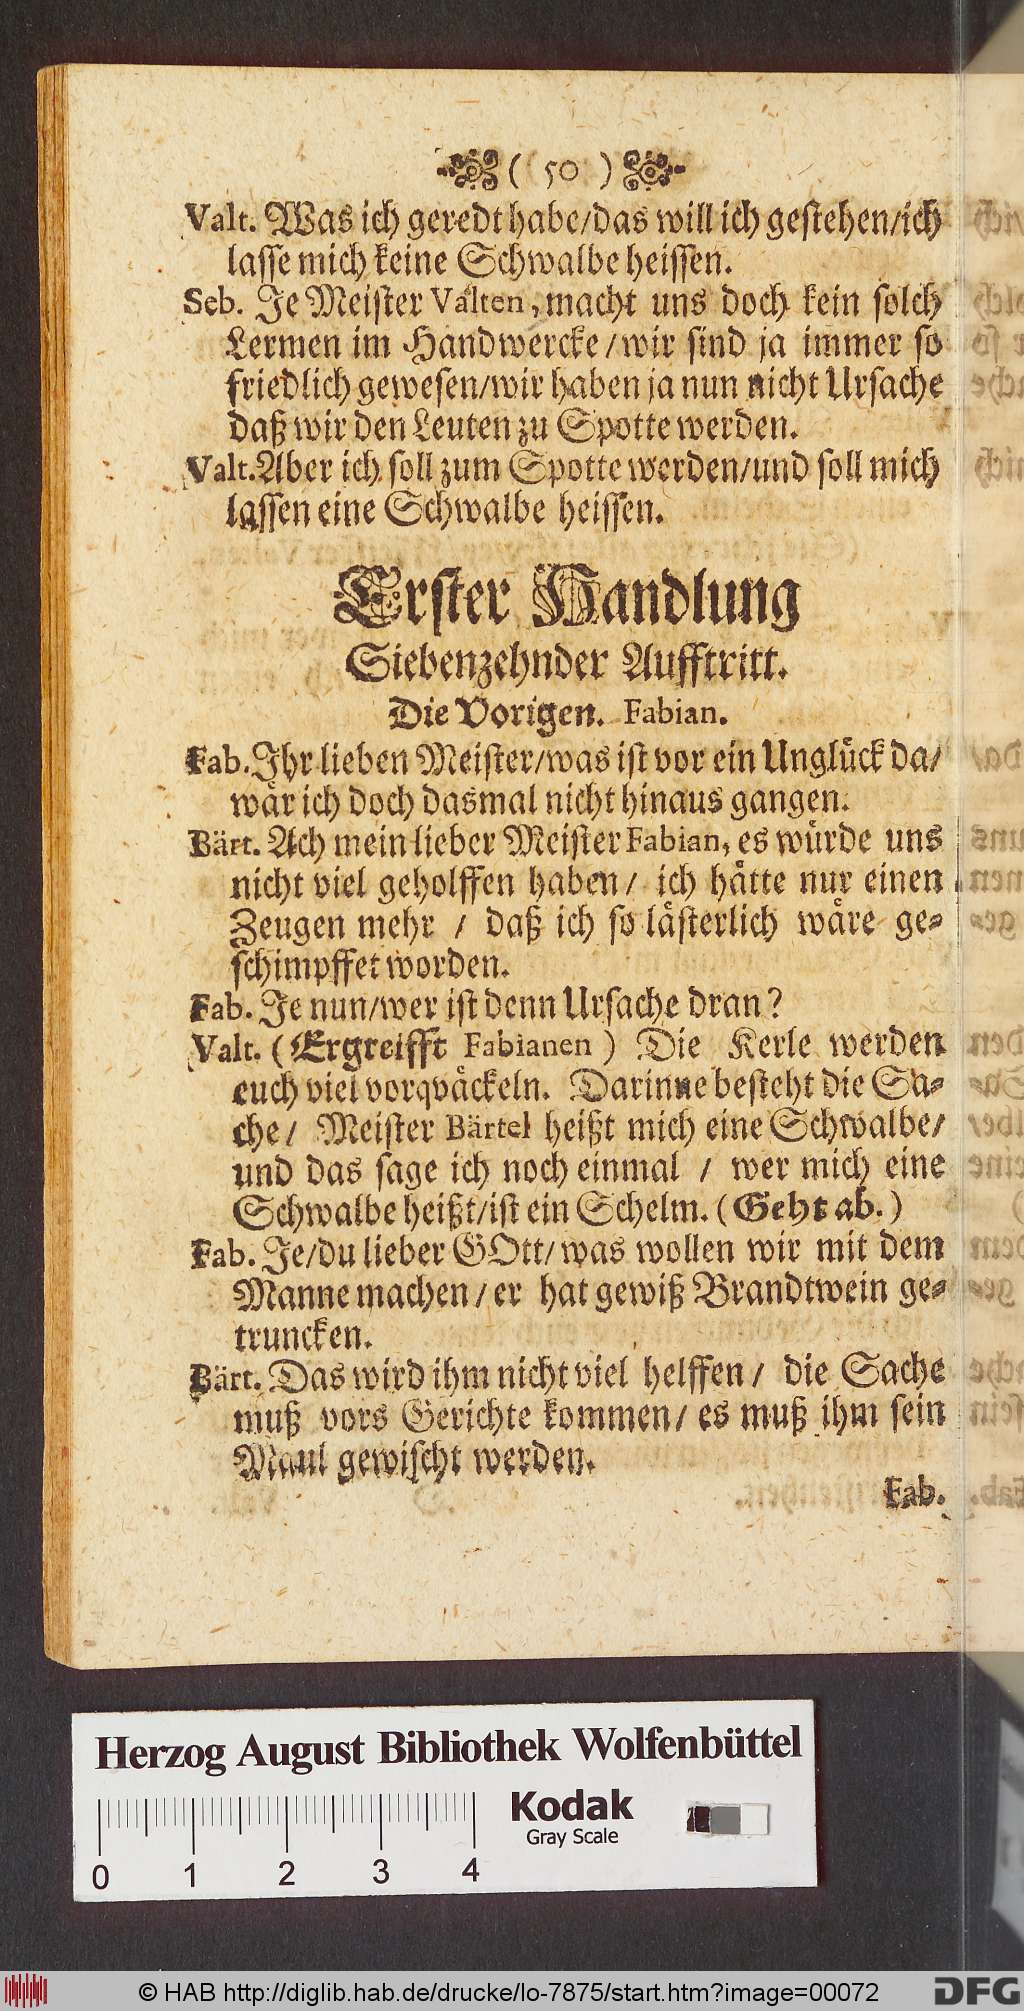 ( 50 )
Valt. Was ich geredt habe/das will ich gestehen/ich
lasse mich keine Schwalbe heissen.
Seb. Je Meister Valten, macht uns doch kein solch
Lermen im Handwercke/wir sind ja immer so
friedlich gewesen/wir haben ja nun nicht Ursache
daß wir den Leuten zu Spotte werden.
Valt. Aber ich soll zum Spotte werden/und soll mich
lassen eine Schwalbe heissen.
Erster Handlung
Siebenzehnder Aufftritt.
Die Vorigen. Fabian.
Fab. Ihr lieben Meister/was ist vor ein Unglück da/
wär ich doch dasmal nicht hinaus gangen.
Bärt. Ach mein lieber Meister Fabian, es würde uns
nicht viel geholffen haben/ ich hätte nur einen
Zeugen mehr / daß ich so lästerlich wäre ge-
schimpffet worden.
Fab. Je nun/wer ist denn Ursache dran?
Valt. (Ergreifft Fabianen) Die Kerle werden
euch viel vorqväckeln. Darinne besteht die Sa-
che/ Meister Bärtel heißt mich eine Schwalbe/
und das sage ich noch einmal / wer mich eine
Schwalbe heißt/ist ein Schelm. (Geht ab.)
Fab. Je/du lieber GOtt/was wollen wir mit dem
Manne machen/er hat gewiß Brandtwein ge-
truncken.
Bärt. Das wird ihm nicht viel helffen/ die Sache
muß vors Gerichte kommen/es muß ihm sein
Maul gewischt werden.
Fab.
Herzog August Bibliothek Wolfenbüttel
Kodak
Gray Scale
0 1 2 3 4
© HAB http://diglib.hab.de/drucke/lo-7875/start.htm?image=00072
DFG